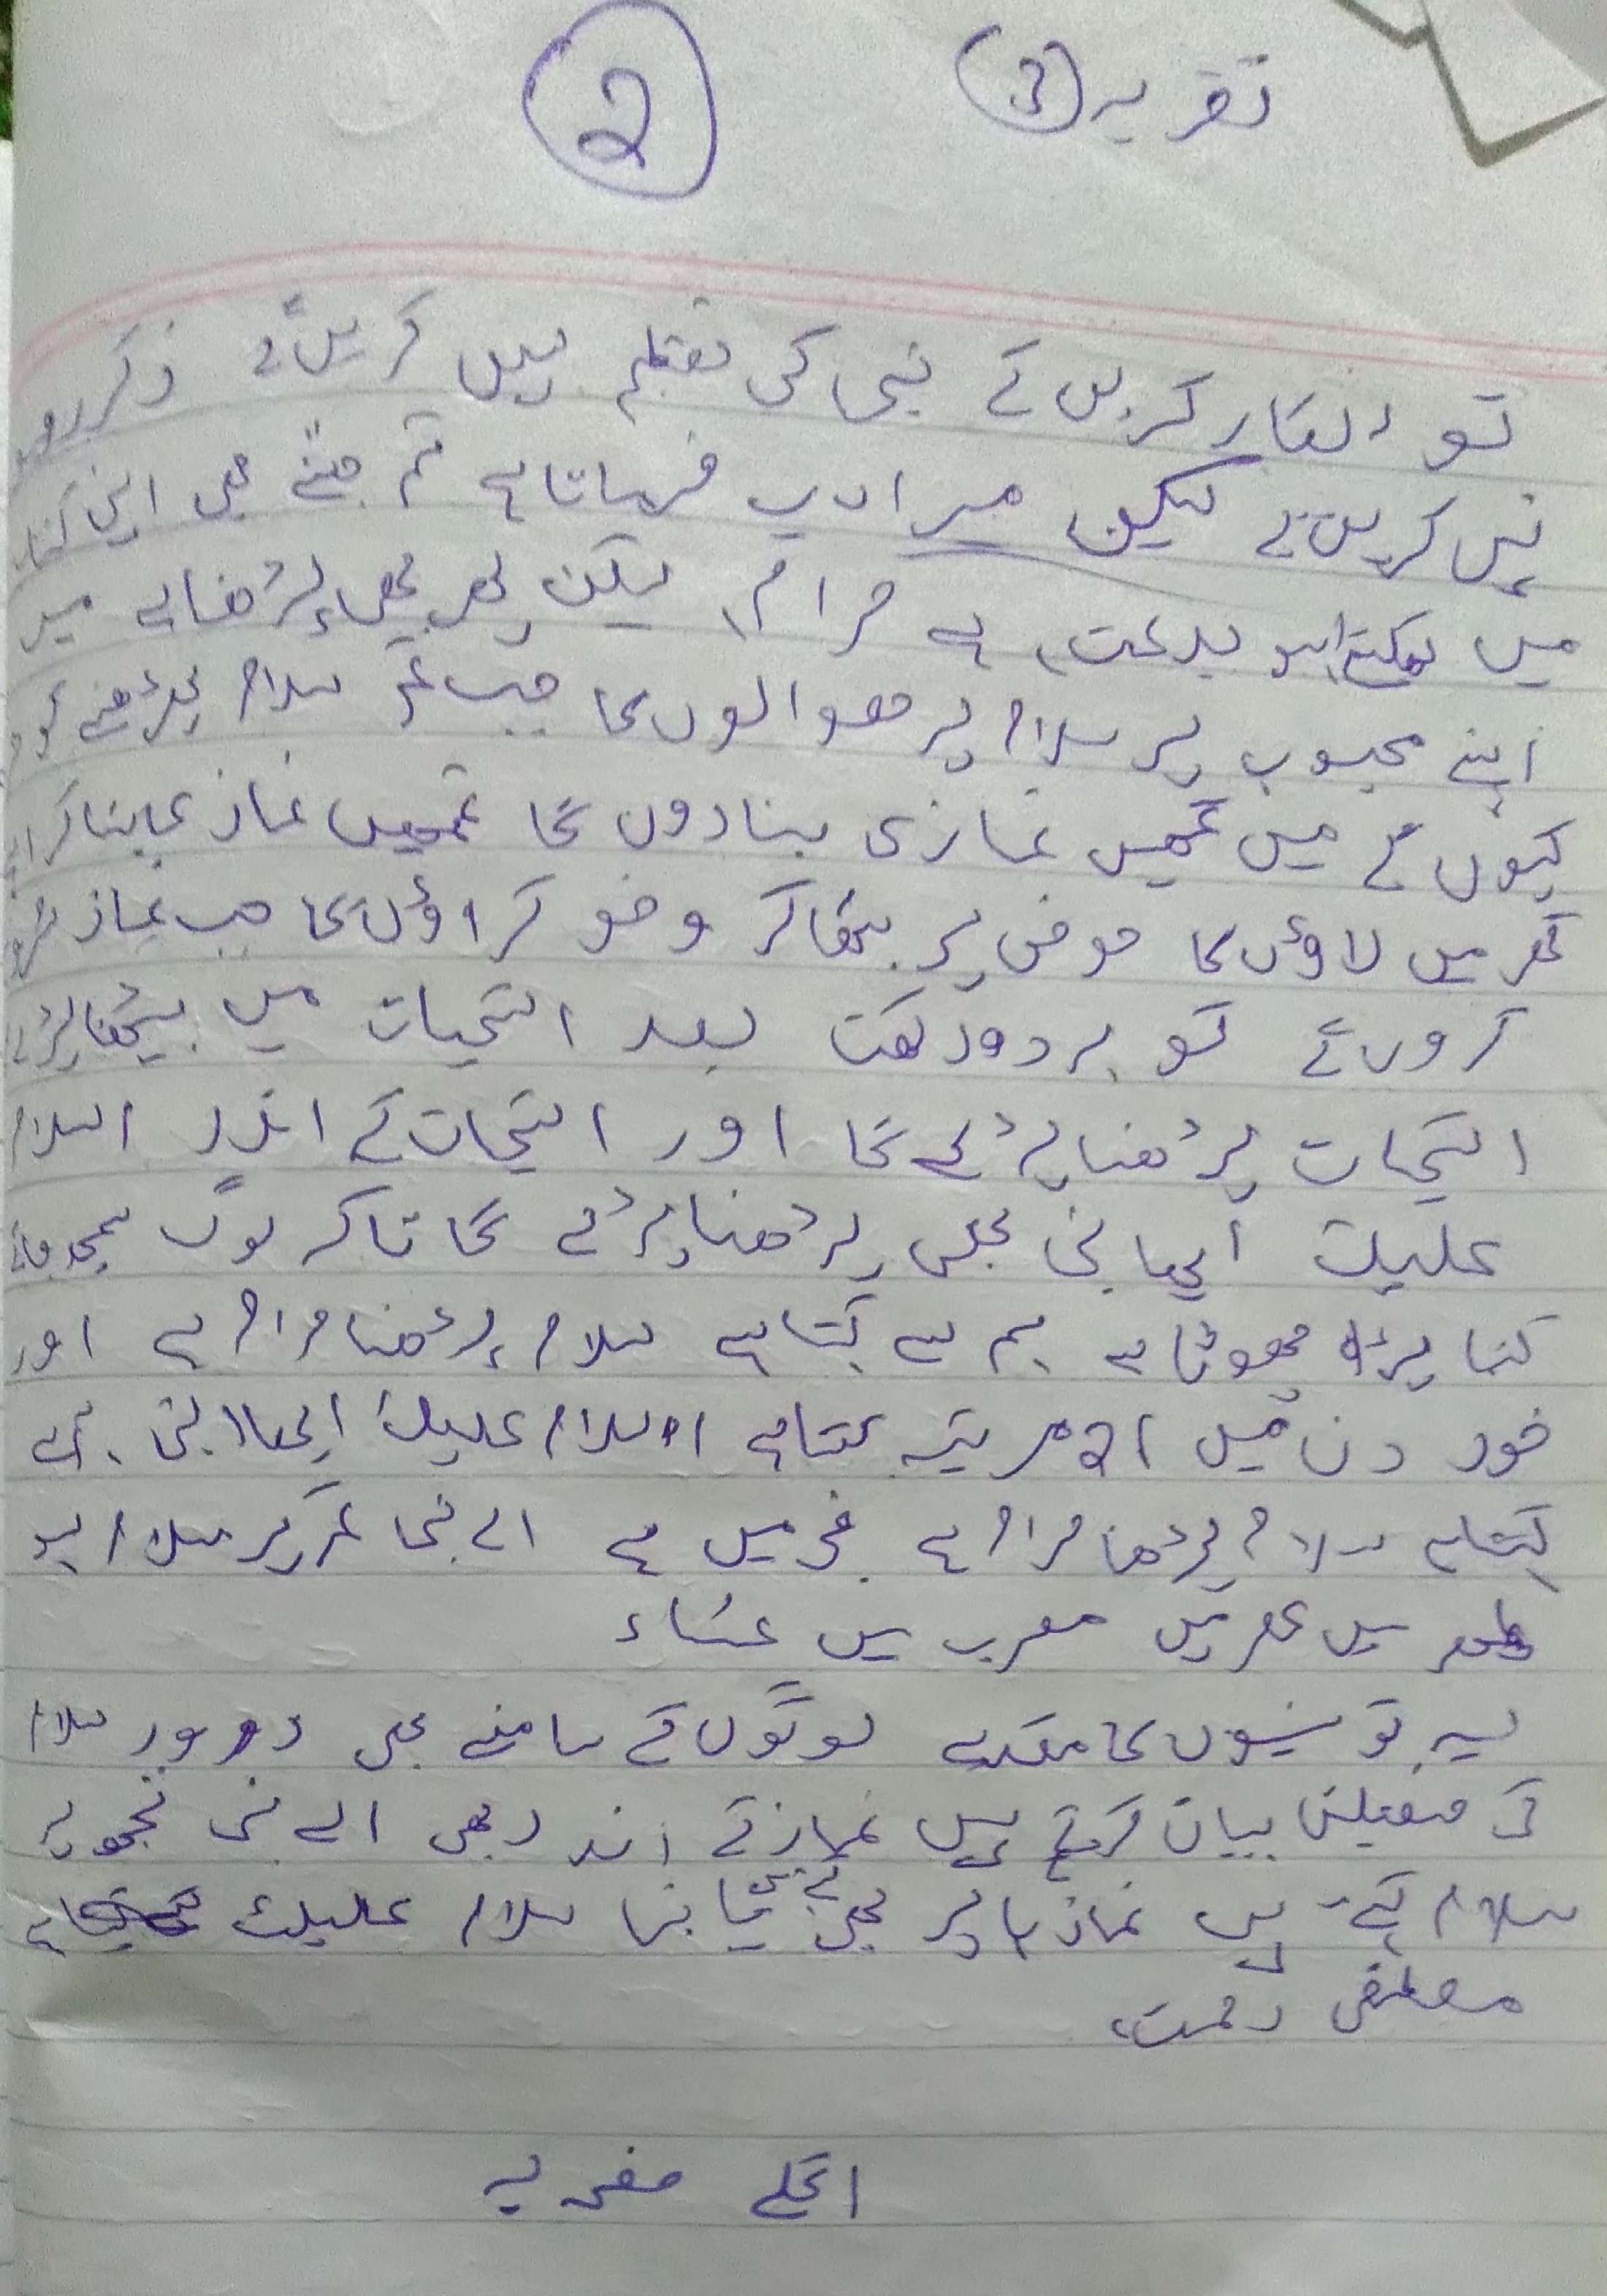 تقریر (3)
2
تو انکار کریں گے نبی کی تعظیم نہیں کریں گے ذکر
نہیں کریں گے لیکن میرا رب فرماتا ہے تم جتنے بھی اپنی کتاب
میں لکھتے رہو بدعت ہے حرام لیکن پھر بھی پڑھنا ہے میں
اپنے محبوب پر سلام پڑھوالوں گا جب تم سلام پڑھنے
کیوں کے میں تمہیں نمازی بنادوں گا تمہیں نمازی بناکر
گھر میں لاوں گا حوض پر بیٹھاکر وضو کراؤں گا جب نماز
کروں گے تو ہر دو رکعت بعد التحیات میں بیٹھنا پڑے
التحیات پڑھنا پڑے گا اور التحیات کے اندر السلام
علیک ایھا نبی بھی پڑھنا پڑے گا تاکہ لوگ سمجھ جائے
کتنا بڑا جھوٹا ہے ہم سے کہتا ہے سلام پڑھنا حرام ہے اور
خود دن میں مرتبہ کہتا ہے السلام علیک ایھا النبی
کہتا ہے سلام پڑھنا حرام ہے فجر میں ہے اے نبی تم پر سلام ہو
ظہر میں عصر میں مغرب میں عشاء
یہ تو سنیوں کا مقدر ہے لوگوں کے سامنے بھی درود سلام
کی فضیلت بیان کرتے ہیں نماز کے اندر بھی اے نبی تجھ پر
سلام کہتے ہیں نماز باہر بھی کہتے ہیں یا نبی سلام علیک
مصطفی رحمت
اگلے صفحہ پہ